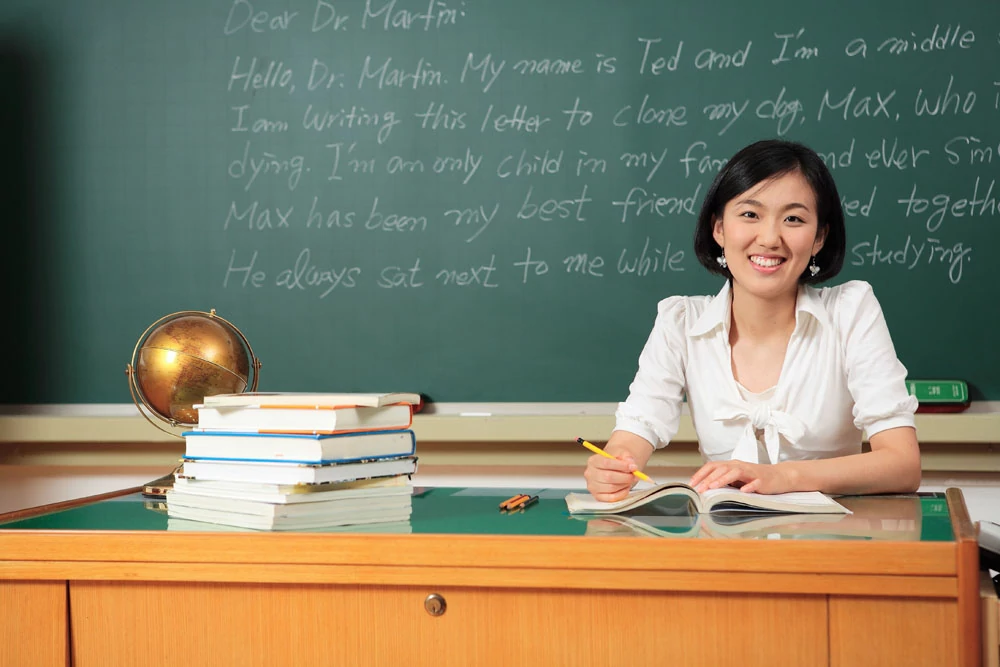 Dear Dr. Martin:
Hello, Dr. Martin. My name is Ted and I'm a middle
I am writing this letter to clone my dog, Max, who i
dying. I'm an only child in my fam nd ever sin
Max has been my best friend ed togeth
He always sat next to me while studying.